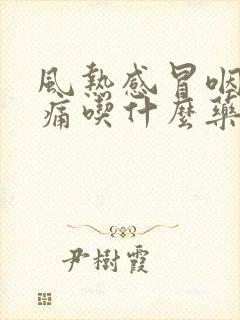 風熱感冒咽
痛喫什麼藥
尹樹霞